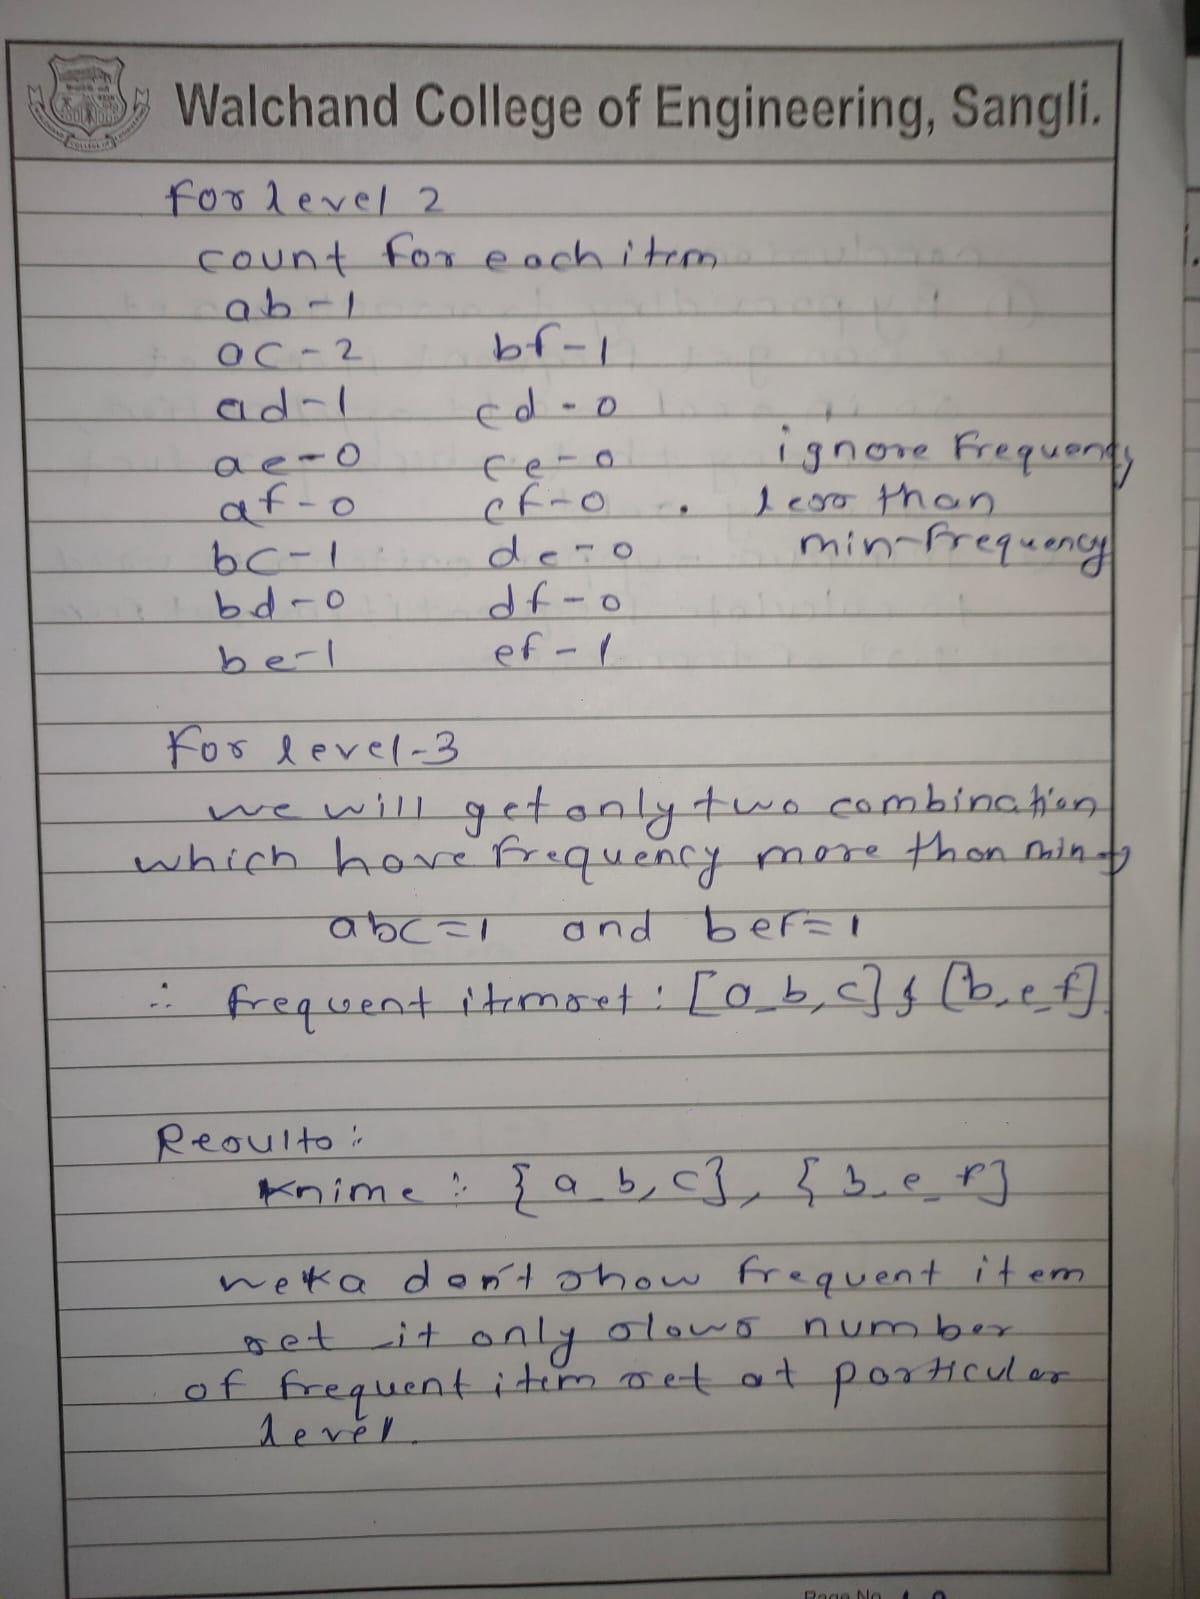 Walchand College of Engineering, Sangli.
For level 2
count for each item
ab-1
ac-2 bf-1
ad-1 cd-0
ae-0 ce-0 ignore frequency
af-0 cf-0 less than
bc-1 de-0 min-frequency
bd-0 df-0
be-1 ef-1
For level-3
we will get only two combination
which have frequency more than min-f
abc=1 and bef=1
∴ frequent itemset: [a,b,c] & [b,e,f]
Results:
Knime: {a,b,c}, {b,e,f}
weka don't show frequent item
set it only shows number
of frequent item set at particular
level.
Page No.